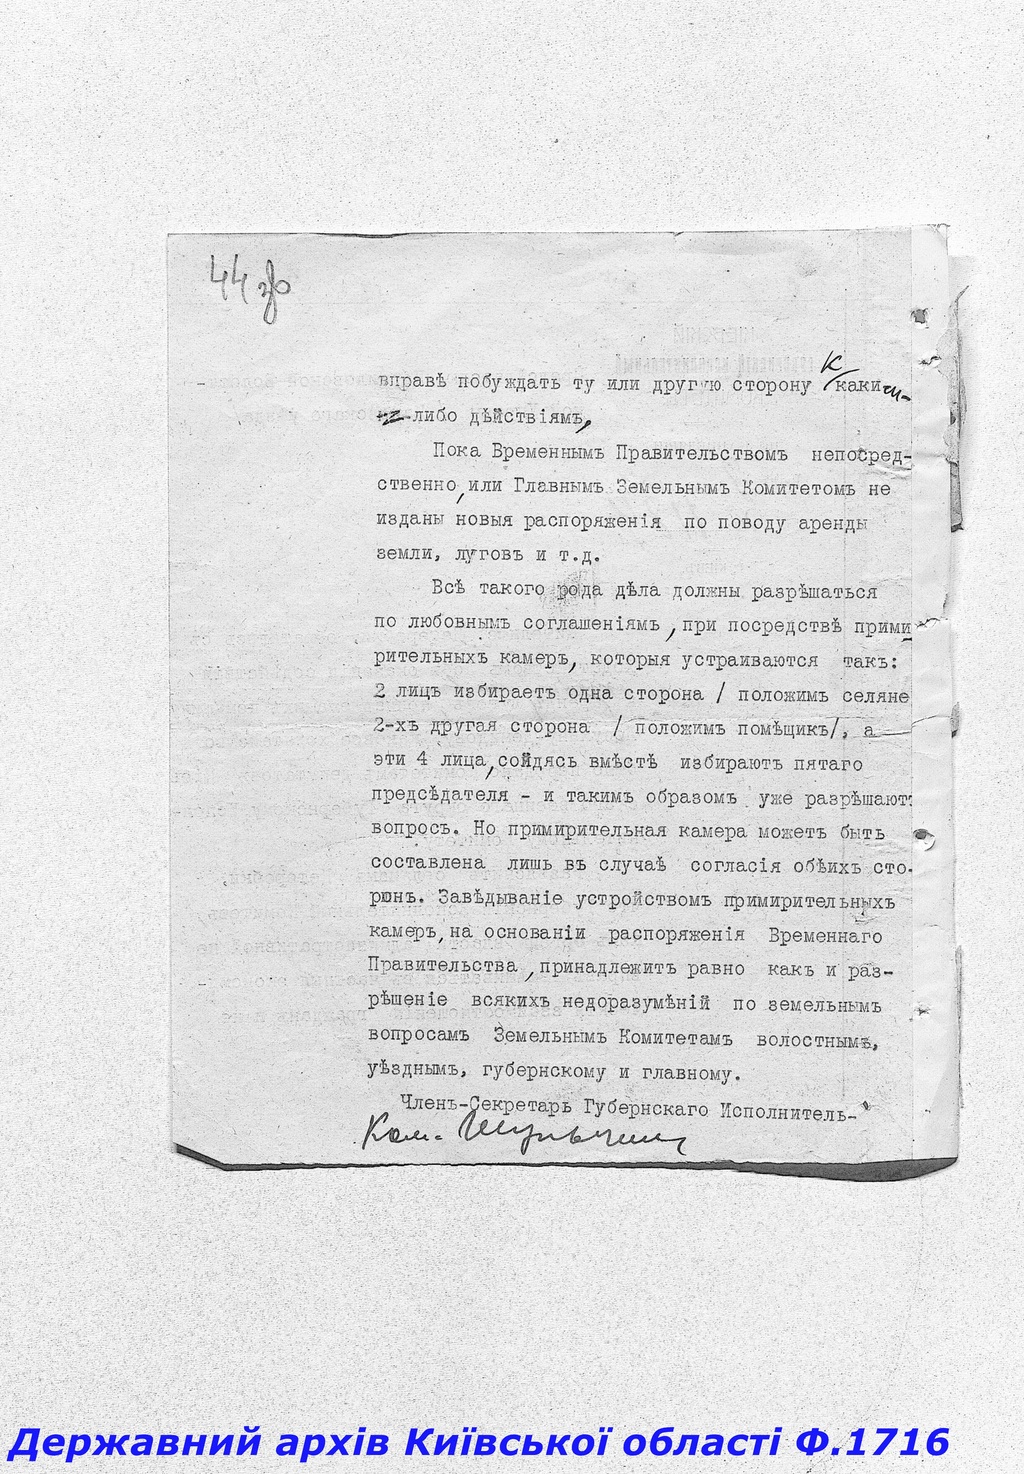 44 зв
вправѣ побуждать ту или другую сторону к каки
ми-либо дѣйствіямъ,
Пока Временнымъ Правительствомъ непосред-
ственно, или Главнымъ Земельнымъ Комитетомъ не
изданы новыя распоряженія по поводу аренды
земли, луговъ и т.д.
Всѣ такого рода дѣла должны разрѣшаться
по любовнымъ соглашеніямъ, при посредствѣ прими
рительныхъ камеръ, которыя устраиваются такъ:
2 лицъ избираетъ одна сторона / положимъ селяне
2-хъ другая сторона / положимъ помѣщикъ/, а
эти 4 лица, сойдясь вмѣстѣ избираютъ пятаго
предсѣдателя - и такимъ образомъ уже разрѣшают
вопросъ. Но примирительная камера можетъ быть
составлена лишь въ случаѣ согласія обѣихъ сто-
ронъ. Завѣдываніе устройствомъ примирительныхъ
камеръ, на основаніи распоряженія Временнаго
Правительства, принадлежитъ равно какъ и раз-
рѣшеніе всякихъ недоразумѣній по земельнымъ
вопросамъ Земельнымъ Комитетамъ волостнымъ,
уѣзднымъ, губернскому и главному.
Членъ-Секретарь Губернскаго Исполнитель-
Ком.
Державний архів Київської області Ф.1716